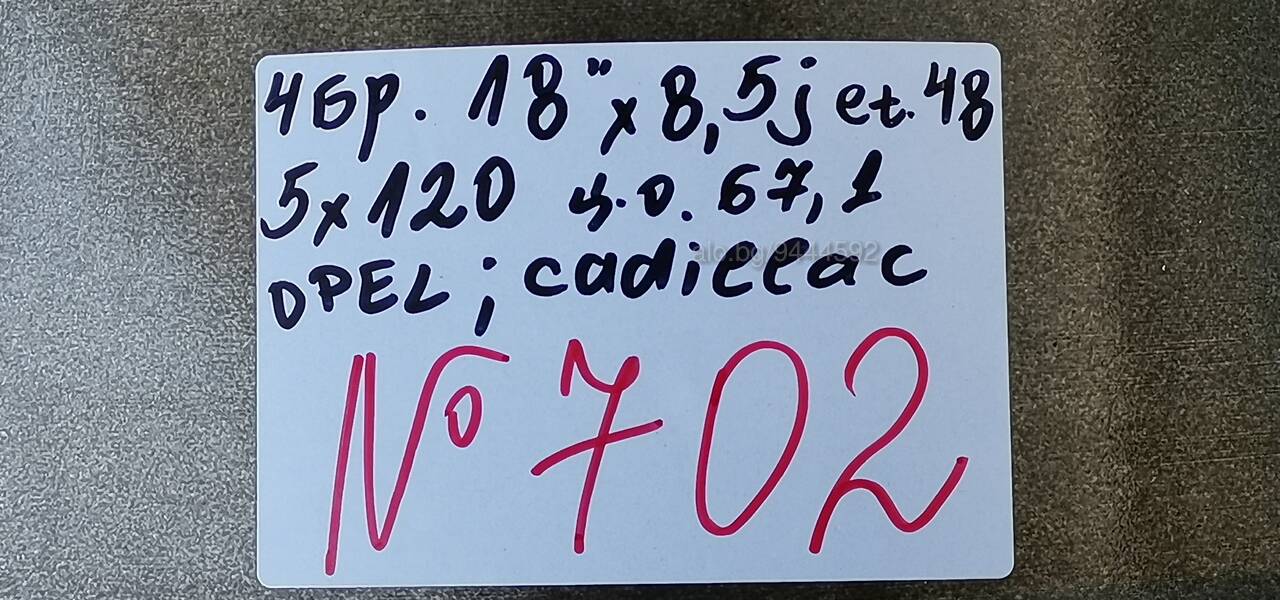 4бр. 18" x 8,5j et. 48
5x120 ц.о. 67,1
OPEL; cadillac
alo.bg/9444592
№ 702